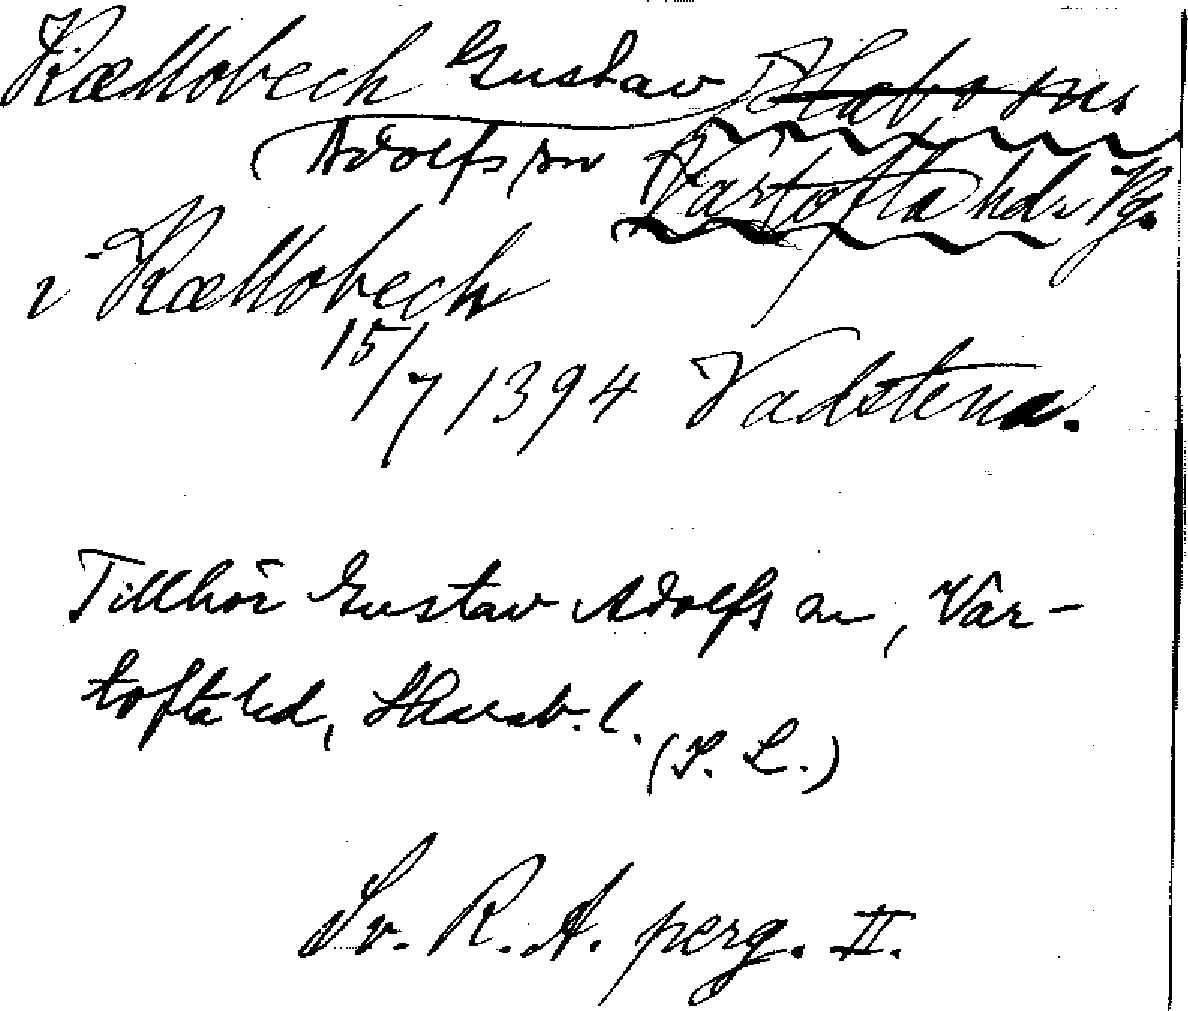 Kællobech Gustav Habo sn
Adolfs sn Vartofta hd. Vg.
i Kællobech
15/7 1394 Vadstena.
Tillhör Gustav Adolfs sn, Var-
tofta hd, Skarab. l.
(S. L.)
Sv. R. A. perg. II.